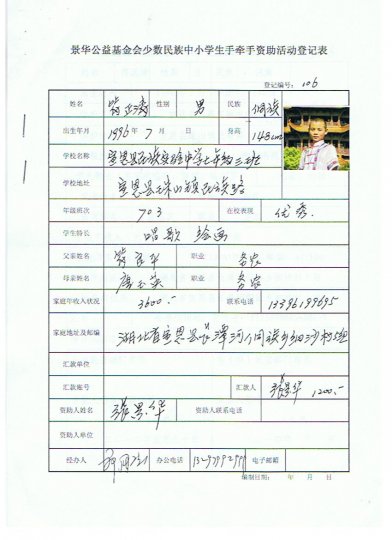 景华公益基金会少数民族中小学生手牵手资助活动登记表
登记编号：106
姓名 性别 男 民族 侗族
出生年月 1996 年 7 月 日 身高 148cm
学校名称 宣恩县民族实验中学七年级三班
学校地址 宣恩县珠山镇民族路
年级班次 703 在校表现 优秀.
学生特长 唱歌 绘画
父亲姓名 职业 务农
母亲姓名 职业 务农
家庭年收入状况 3600.- 联系电话 13396199695
家庭地址及邮编 湖北省宣恩县长潭河侗族乡
汇款单位
汇款账号 汇款人 张景华 1200.-
资助人姓名 张景华 资助人联系电话
资助人单位
经办人 办公电话 电子邮箱
编制日期： 年 月 日